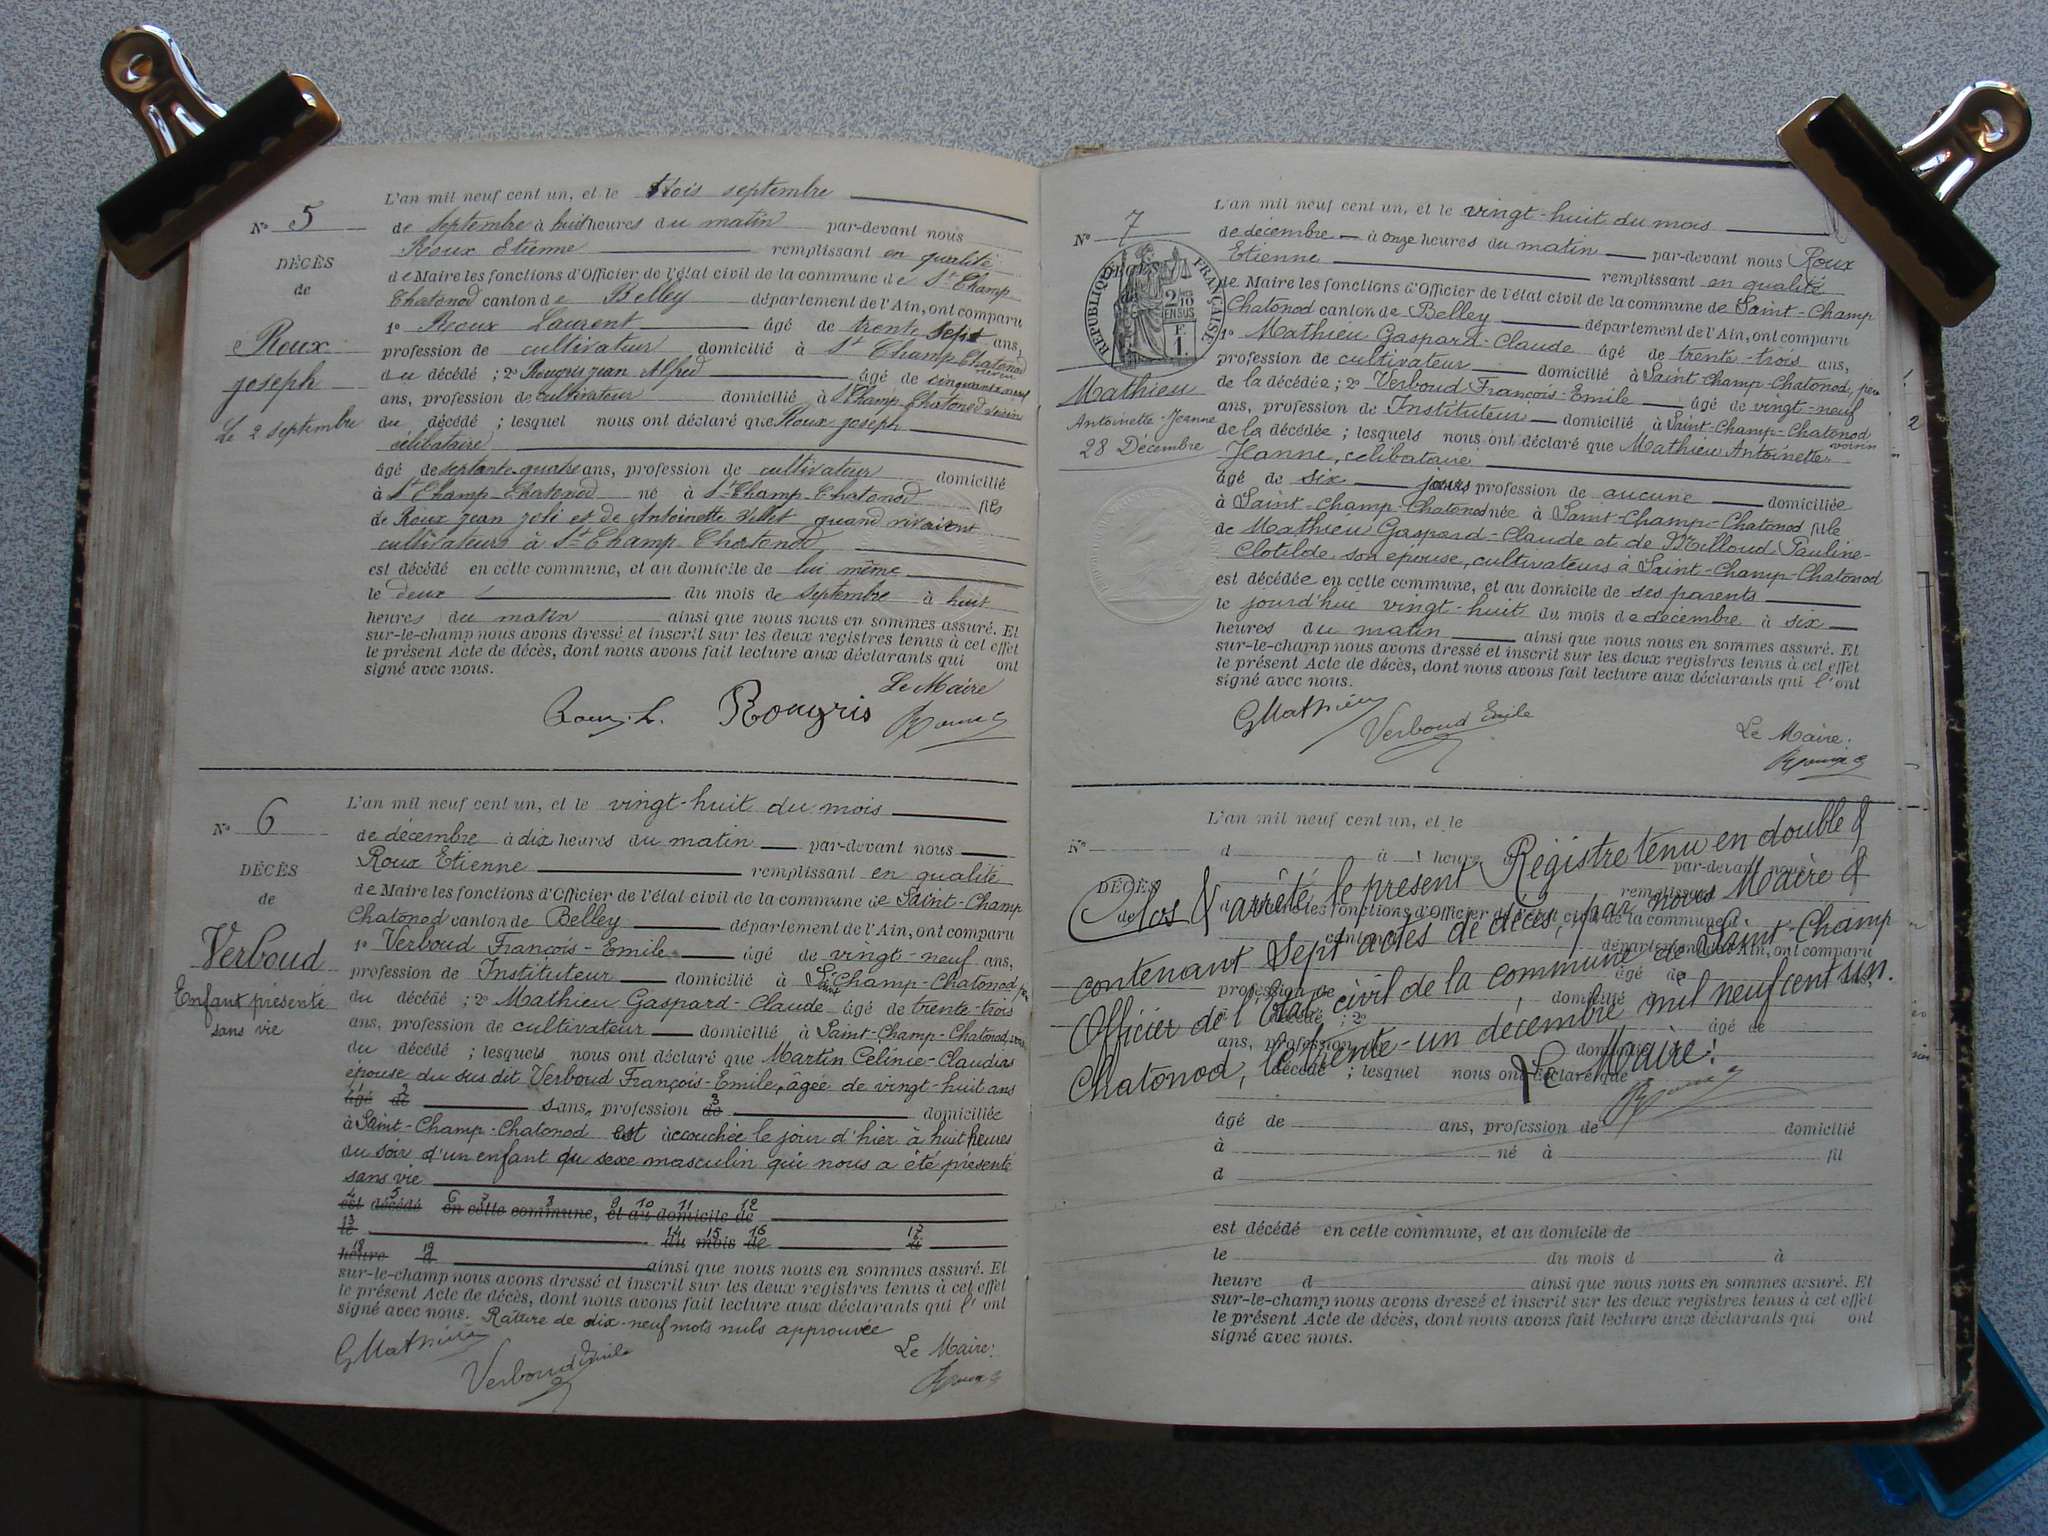 N° 5
DÉCÈS
de
Roux
joseph
Le 2 septembre
L'an mil neuf cent un, et le trois septembre
de septembre à huit heures du matin par-devant nous
Roux Etienne remplissant en qualité
de Maire les fonctions d'Officier de l'état civil de la commune de St Champ
Chatonod canton de Belley département de l'Ain, ont comparu
1° Roux Laurent âgé de trente sept ans,
profession de cultivateur domicilié à St Champ-Chatonod
du décédé ; 2° Rougris jean Alfred âgé de cinquante neuf
ans, profession de cultivateur domicilié à St Champ-Chatonod voisin
du décédé ; lesquel nous ont déclaré que Roux joseph
célibataire
âgé de septante quatre ans, profession de cultivateur domicilié
à St Champ-Chatonod né à St Champ-Chatonod fils
de Roux jean joli et de Antoinette Villet quand vivaient
cultivateurs à St Champ Chatonod
est décédé en cette commune, et au domicile de lui même
le deux du mois de septembre à huit
heures du matin ainsi que nous nous en sommes assuré. Et
sur-le-champ nous avons dressé et inscrit sur les deux registres tenus à cet effet
le présent Acte de décès, dont nous avons fait lecture aux déclarants qui ont
signé avec nous.
Le Maire
Roux. L. Rougris Roux E
N° 6
DÉCÈS
de
Verboud
Enfant présenté
sans vie
L'an mil neuf cent un, et le vingt-huit du mois
de décembre à dix heures du matin par-devant nous
Roux Etienne remplissant en qualité
de Maire les fonctions d'Officier de l'état civil de la commune de Saint-Champ
Chatonod canton de Belley département de l'Ain, ont comparu
1° Verboud François-Emile âgé de vingt-neuf ans,
profession de Instituteur domicilié à Saint Champ-Chatonod, père
du décédé ; 2° Mathieu Gaspard-Claude âgé de trente-trois
ans, profession de cultivateur domicilié à Saint-Champ-Chatonod, voisin
du décédé ; lesquels nous ont déclaré que Martin Célinie-Claudia
épouse du sus dit Verboud François-Emile, âgée de vingt-huit ans
âgé de sans profession de domiciliée
à Saint-Champ-Chatonod est accouchée le jour d'hier à huit heures
du soir d'un enfant du sexe masculin qui nous a été présenté
sans vie
est décédé en cette commune, et au domicile de
le du mois de à
heure d ainsi que nous nous en sommes assuré. Et
sur-le-champ nous avons dressé et inscrit sur les deux registres tenus à cet effet
le présent Acte de décès, dont nous avons fait lecture aux déclarants qui l'ont
signé avec nous. Rature de dix-neuf mots nuls approuvée
GMathieu Verboud Emile Le Maire:
Roux E
N° 7
DÉCÈS
de
RÉPUBLIQUE FRANÇAISE
2/10 EN SUS
F. 1.
Mathieu
Antoinette-Jeanne
28 Décembre
L'an mil neuf cent un, et le vingt-huit du mois
de décembre à onze heures du matin par-devant nous Roux
Etienne remplissant en qualité
de Maire les fonctions d'Officier de l'état civil de la commune de Saint-Champ
Chatonod canton de Belley département de l'Ain, ont comparu
1° Mathieu Gaspard-Claude âgé de trente-trois ans,
profession de cultivateur domicilié à Saint-Champ-Chatonod, père
de la décédée ; 2° Verboud François-Emile âgé de vingt-neuf
ans, profession de Instituteur domicilié à Saint-Champ-Chatonod voisin
de la décédée ; lesquels nous ont déclaré que Mathieu Antoinette-
Jeanne, célibataire
âgé de six jours profession de aucune domiciliée
à Saint-Champ-Chatonod née à Saint-Champ-Chatonod fille
de Mathieu Gaspard-Claude et de Milloud Pauline-
Clotilde son épouse, cultivateurs à Saint-Champ-Chatonod
est décédée en cette commune, et au domicile de ses parents
le jourd'hui vingt-huit du mois de décembre à six
heures du matin ainsi que nous nous en sommes assuré. Et
sur-le-champ nous avons dressé et inscrit sur les deux registres tenus à cet effet
le présent Acte de décès, dont nous avons fait lecture aux déclarants qui l'ont
signé avec nous.
GMathieu Verboud Emile Le Maire:
Roux E
N°
DÉCÈS
de
L'an mil neuf cent un, et le
d à heure par-devant nous
remplissant
d les fonctions d'Officier de l'état civil de la commune d
canton d département de l'Ain, ont comparu
âgé de ans,
profession de domicilié
décédé ; 2° âgé de
ans, profession de domicilié
décédé ; lesquel nous ont déclaré que
Clos & arrêté le présent Registre tenu en double &
contenant Sept actes de décès, par nous Maire &
Officier de l'Etat civil de la commune de Saint-Champ
Chatonod, le trente-un décembre mil neuf cent un.
Le Maire:
Roux E
âgé de ans, profession de domicilié
à né à fil
d
est décédé en cette commune, et au domicile de
le du mois d à
heure d ainsi que nous nous en sommes assuré. Et
sur-le-champ nous avons dressé et inscrit sur les deux registres tenus à cet effet
le présent Acte de décès, dont nous avons fait lecture aux déclarants qui ont
signé avec nous.